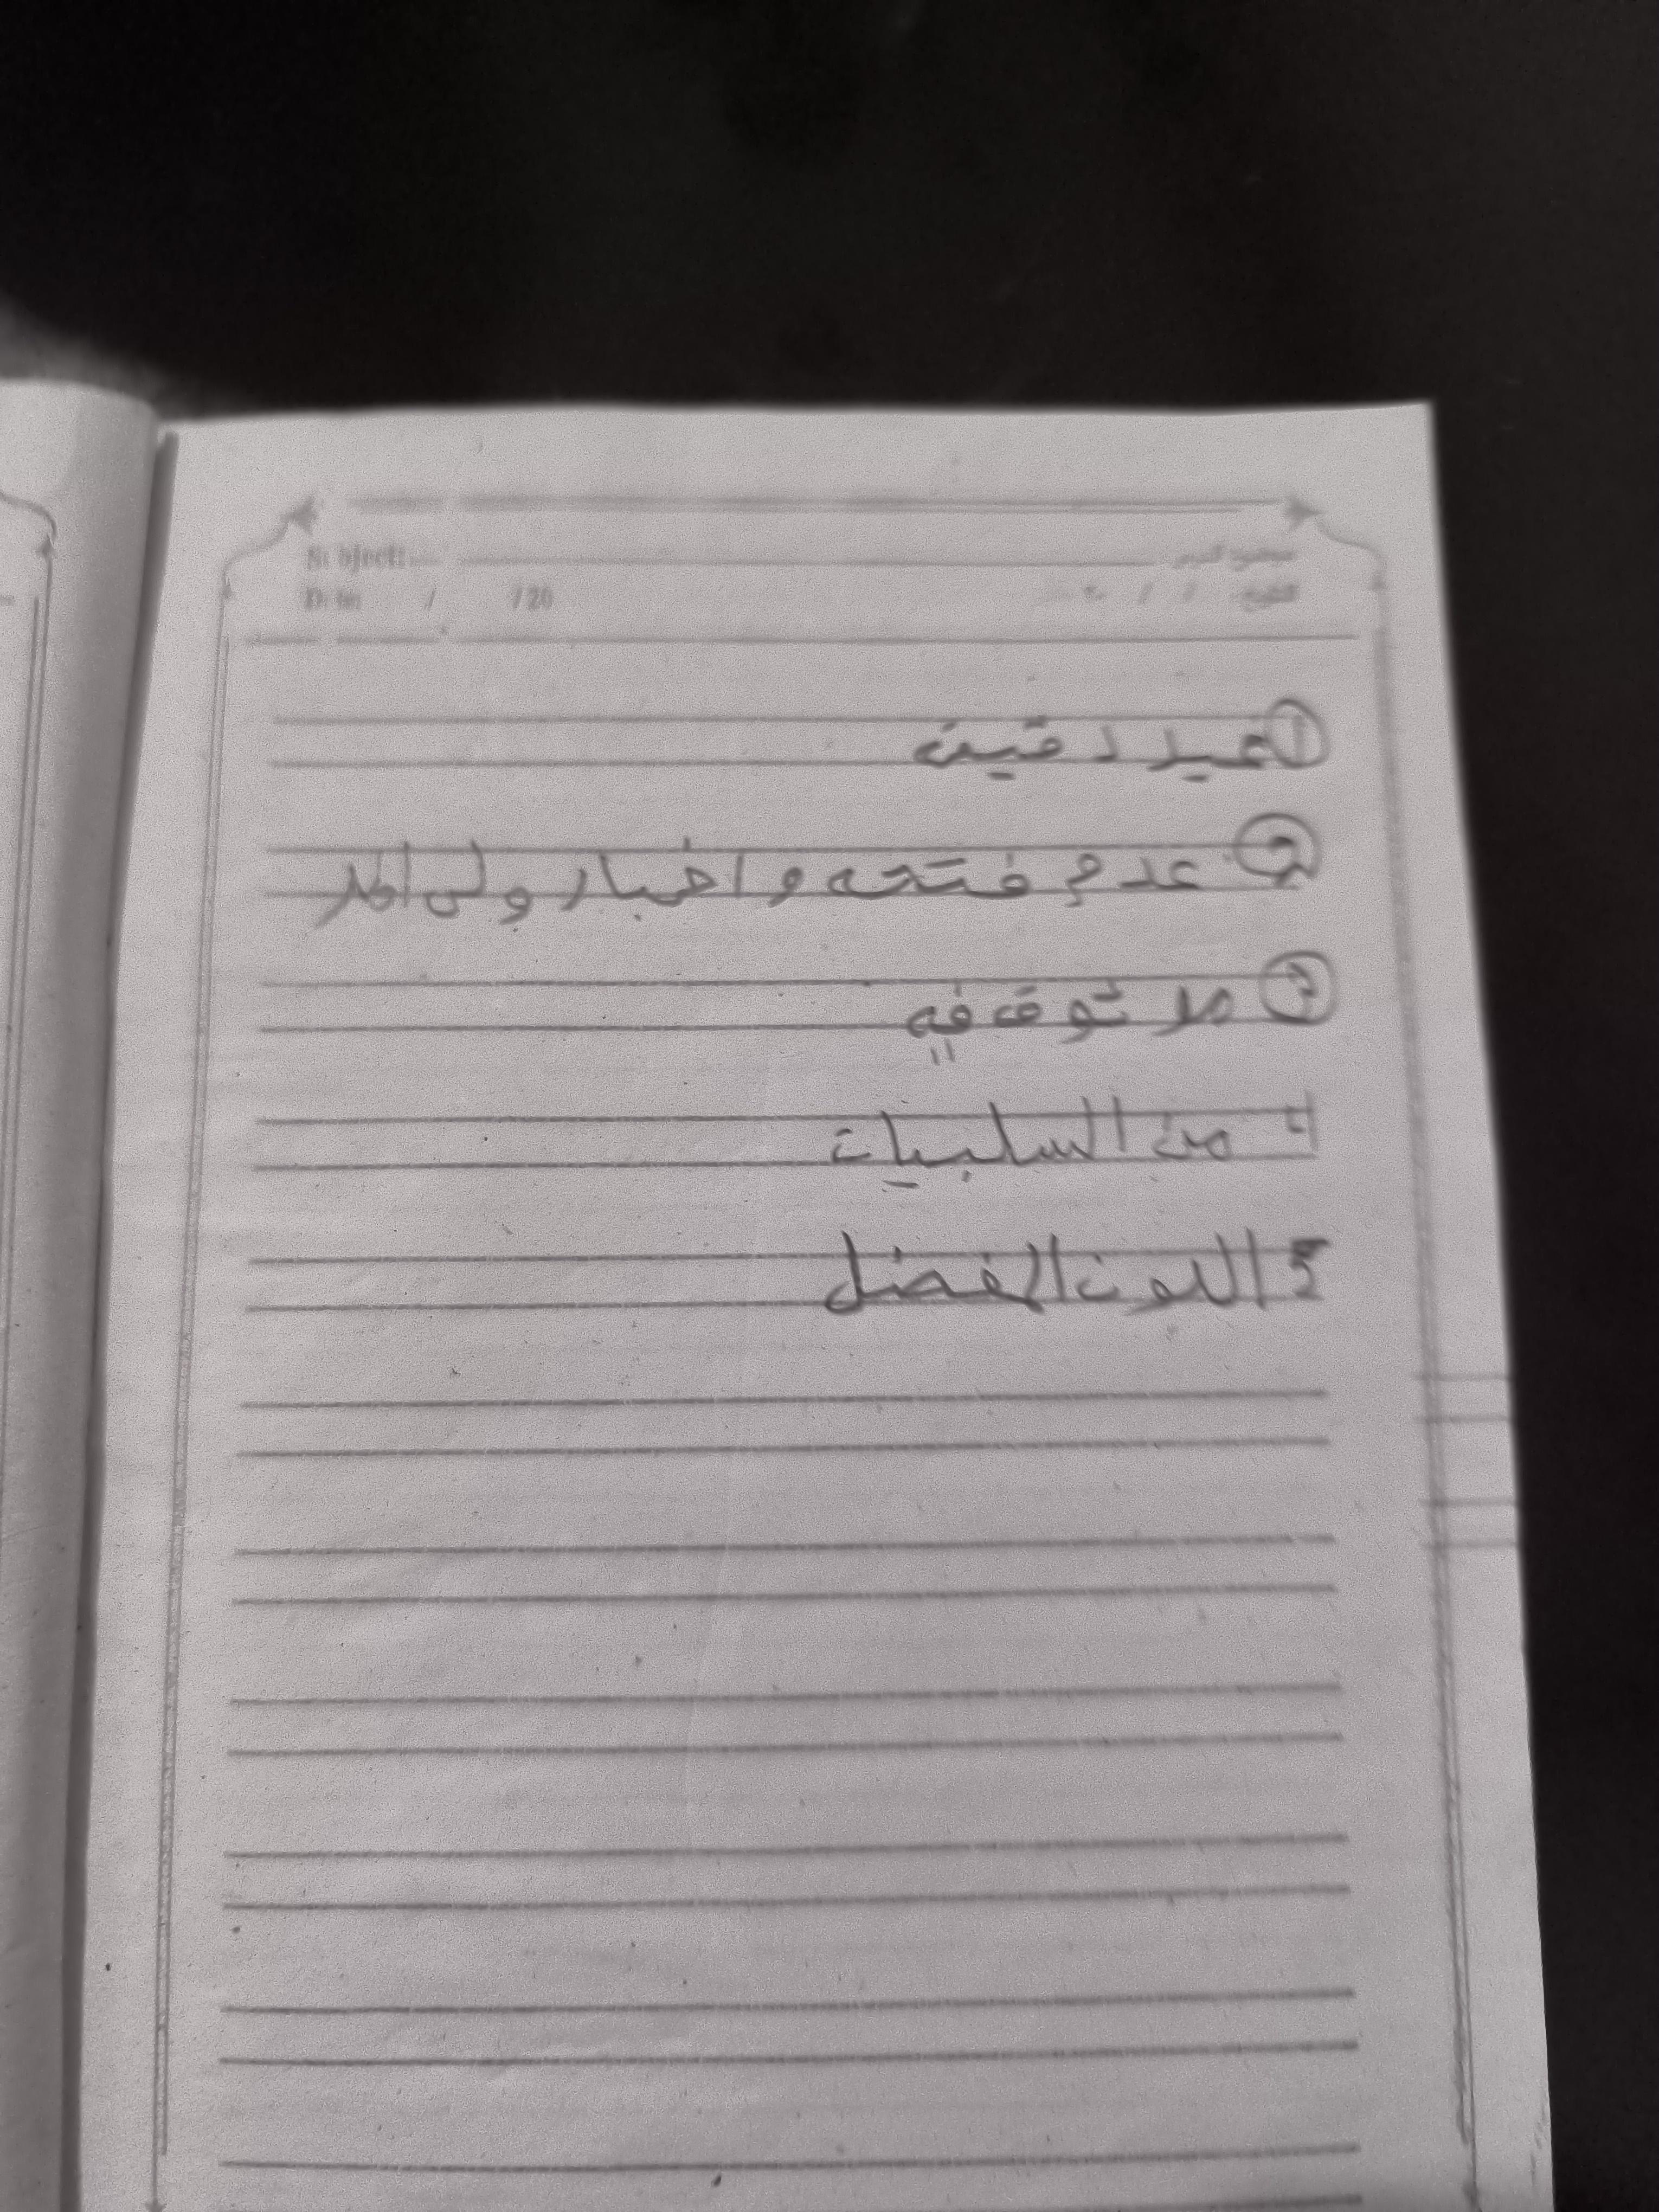 Subject:
Date / / 20
التاريخ: / / ٢٠
① غير دقيقة
② عدم فتحه واخبار ولى الامر
③ موثوق فيه
٤ من السلبيات
5 اللون المفضل